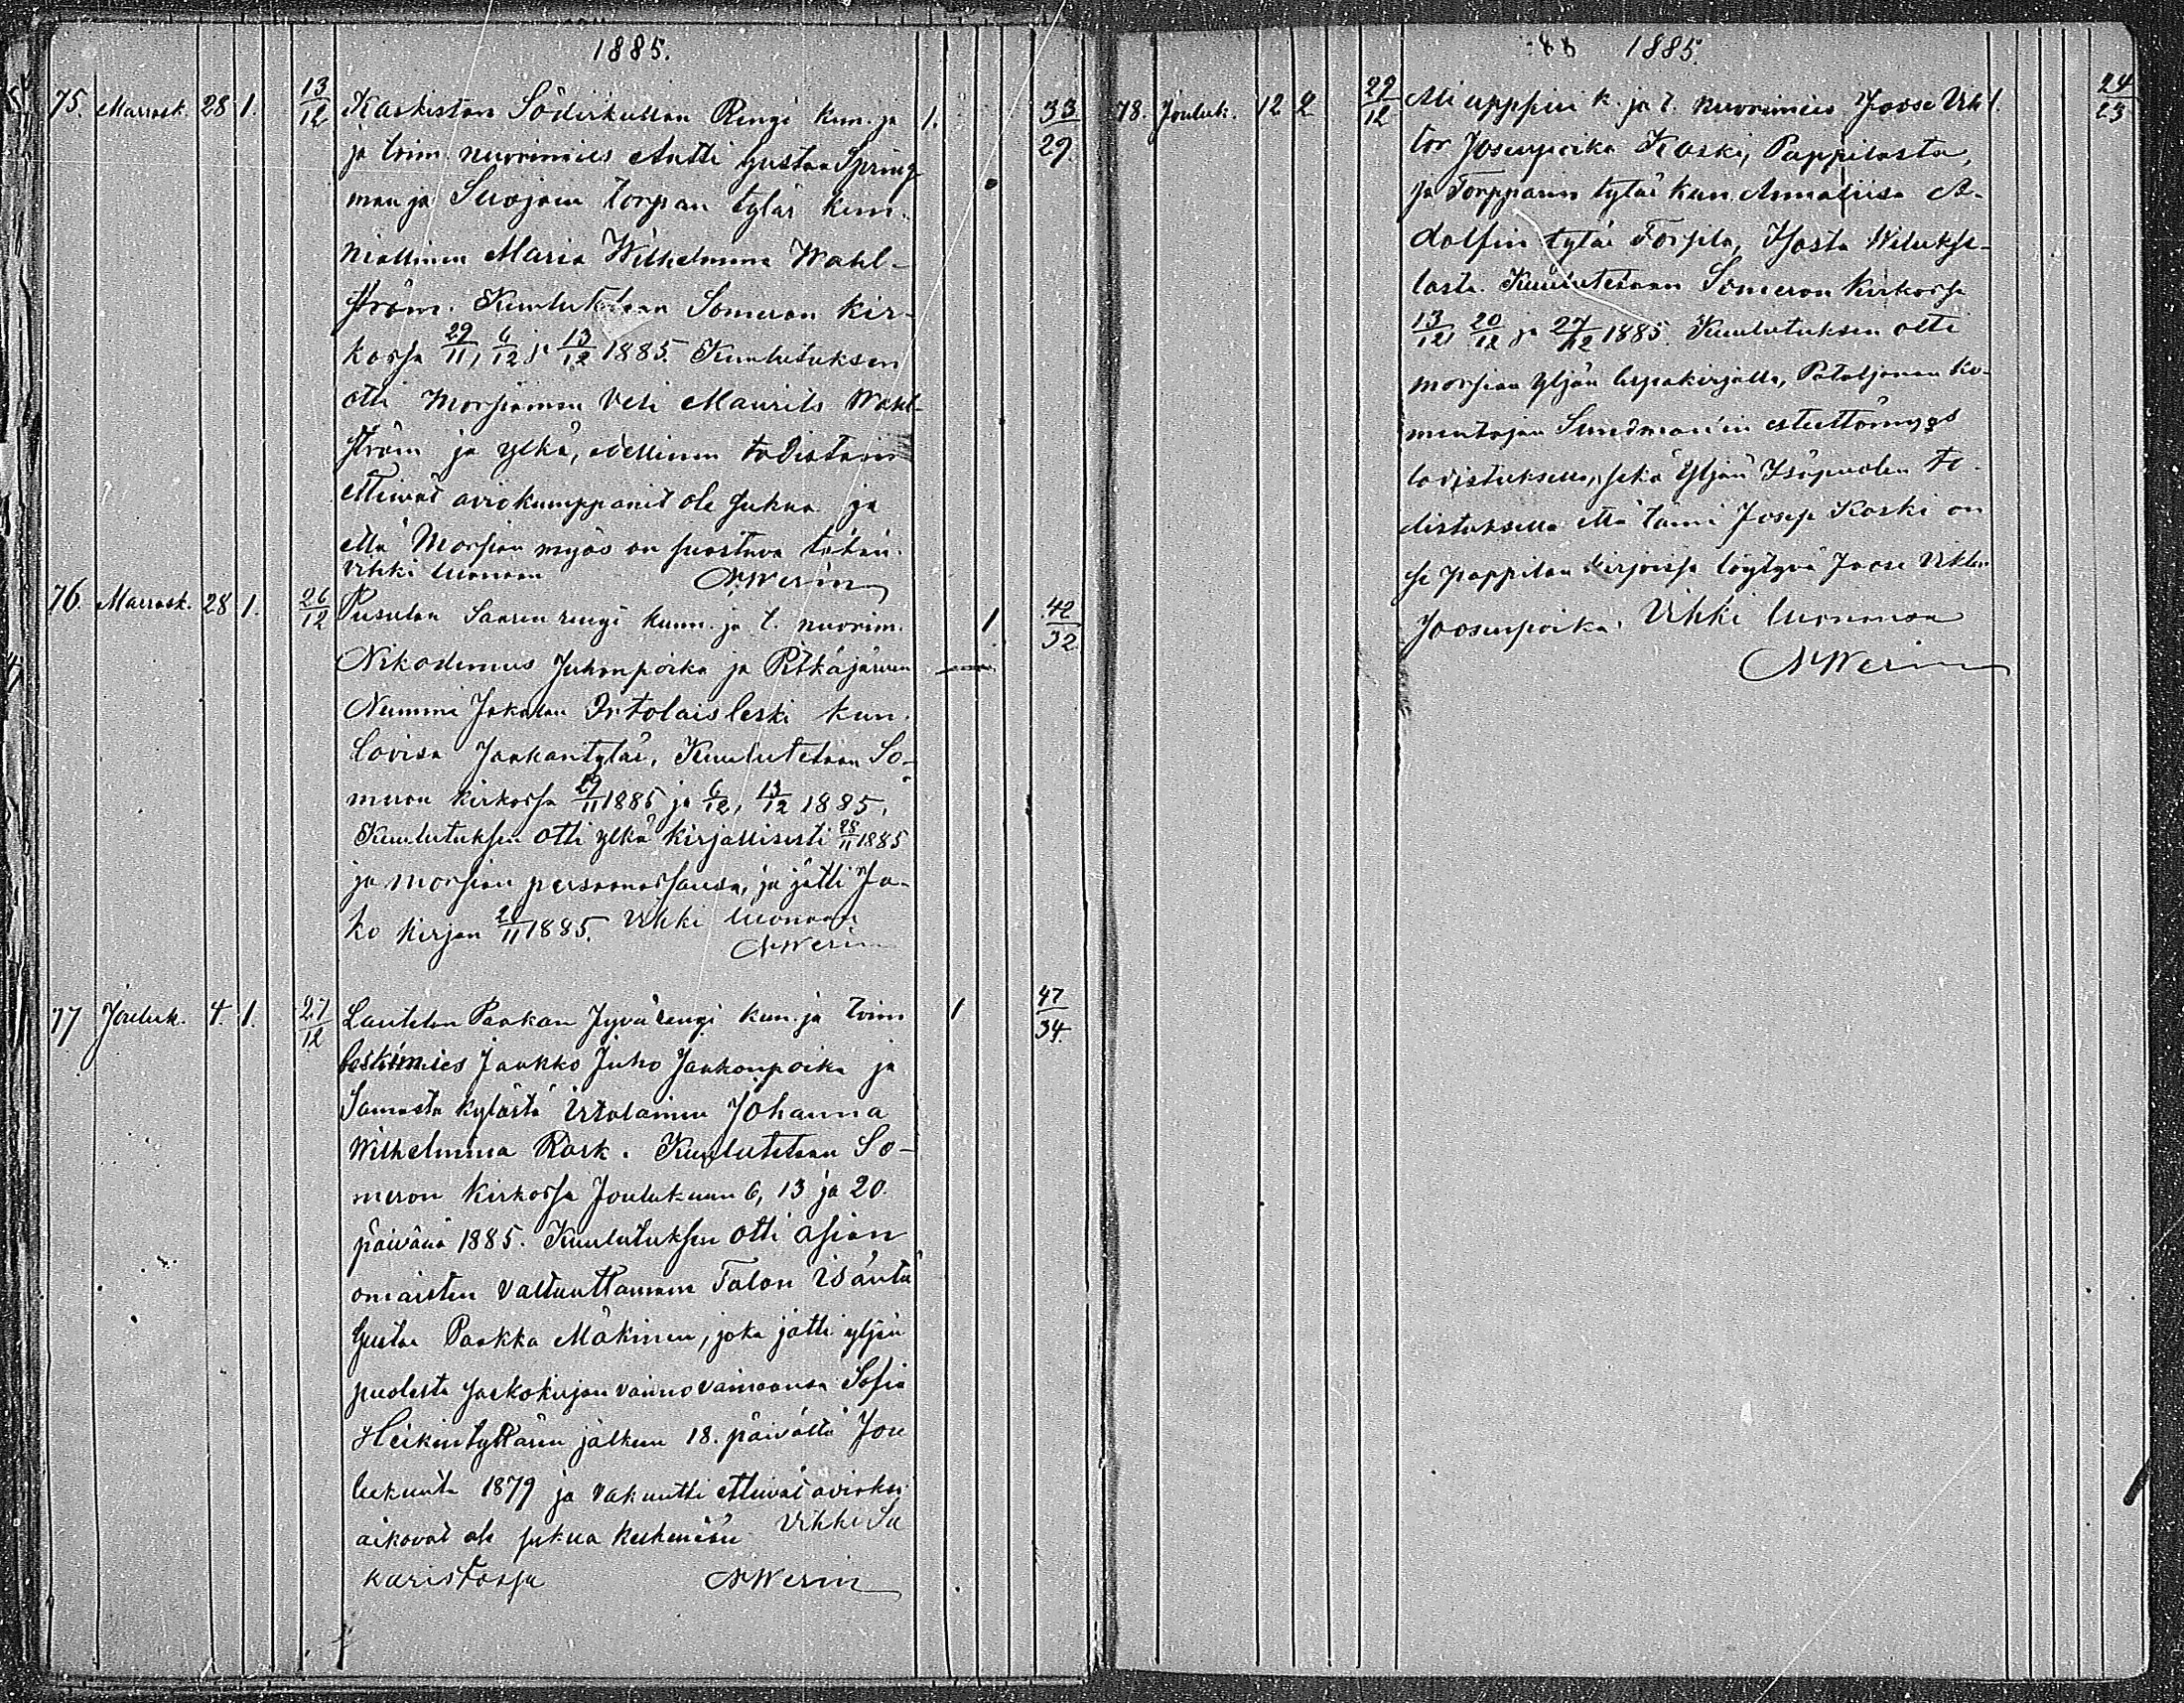 1885.
75. Marrask. 28 1. 13/12 Kaskiston Söderkullan Rengi kun. ja 1. 33/29.
ja toim. nuorimies Antti Gustaa Spring
man ja Suojoen torpan tytär kun.
niallinen Maria Wilhelmina Wahl-
ström. Kuulutetaan Someron kir-
kossa 29/11, 6/12 ja 13/12 1885. Kuulutuksen
otti Morsiamen veli Maurits Wahl-
ström ja ylkä, edellinen todistain
etteivät aviokumppanit ole sukua ja
että Morsian myös on suostuva tähän.
Vihki luonaan AWerin
76. Marrask. 28 1. 26/12 Pusulan Saaren rengi kunn. ja t. nuorim. 1 42/32
Nikodemus Juhonpoika ja Pitkäjärven
Nummi Jakalan Irtolaisleski kun.
Lovisa Jaakantytär. Kuulutetaan So-
meron kirkossa 29/11 1885 ja 6/12, 13/12 1885.
Kuulutuksen otti ylkä kirjallisesti 28/11 1885
ja morsian persoonassansa, ja jätti Ja-
ko kirjan 1885. Vihki luonaan
AWerin
77 Jouluk. 4. 1. 27/12 Lautelan Paakan Jyvärengi kun. ja toim 1 47/34.
leskimies Jaakko Juho Jaakonpoika ja
Samasta kylästä irtolainen Johanna
Wilhelmina Rask. Kuulutetaan So-
meron kirkossa Joulukuun 6, 13 ja 20.
päivänä 1885. Kuulutuksen otti asian
omaisten valtuuttamana Talon isäntä
Gustaa Paakka Mäkinen, joka jätti yljän
puolesta jaokokirjan vaimo vainaansa Sofia
Heikintyttären jälkeen 18. päivältä Jou
lukuuta 1879 ja vakuutti etteivät avioksi
aikovat ole sukua keskenään Vihki Sa
karistossa AWerin
1885.
78. Jouluk. 12 2 27/12 Ali upppseri k. ja t. nuorimies Joose Vik 1. 24/23
tor Josenpoika Koski, Pappilasta,
ja Torpparin tytär kun. Annaliisa A-
dolfin tytär Forsila, Hosta Viluksе-
lasta. Kuulutetaan Someron kirkossa
13/12, 20/12 ja 27/12 1885. Kuulutuksen otti
morsian yljän lupakirjalla, Pataljonan ko-
mentajan Sundman'in esteettömyys
todistuksella, sekä Yljän Isäpuolen to-
distuksella että tämä Josep Koski on
se pappilan kirjoissa löytyvä Joose Viktor
Joosenpoika. Vihki luonansa
AWerin